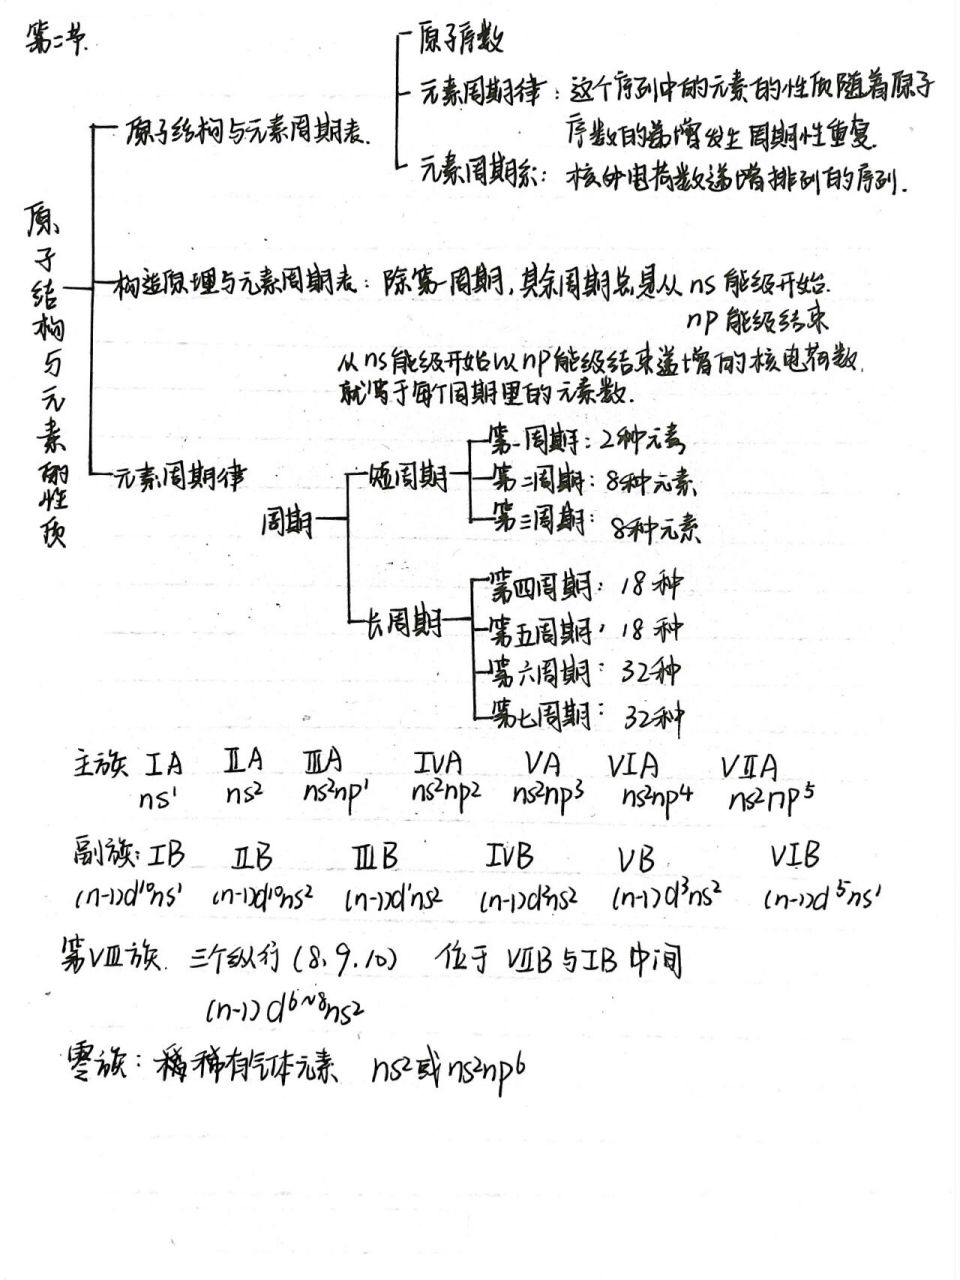 第二节.
原子序数
元素周期律：这个序列中的元素的性质随着原子
序数的递增发生周期性重复.
原子结构与元素周期表.
元素周期系：核外电荷数递增排列的序列.
原子结构与元素的性质
构造原理与元素周期表：除第一周期,其余周期总是从ns能级开始.
np能级结束
从ns能级开始以np能级结束递增的核电荷数.
就等于每个周期里的元素数.
元素周期律
周期
短周期
第一周期：2种元素
第二周期：8种元素
第三周期：8种元素
长周期
第四周期：18种
第五周期：18种
第六周期：32种
第七周期：32种
主族 IA ⅡA ⅢA IVA VA VIA VⅡA
ns¹ ns² ns²np¹ ns²np2 ns²np3 ns²np4 ns²np⁵
副族：IB ⅡB ⅢB IVB VB VIB
(n-1)d¹⁰ns¹ (n-1)d¹⁰ns² (n-1)d¹ns² (n-1)d²ns² (n-1)d³ns² (n-1)d⁵ns¹
第VⅢ族. 三个纵行(8、9、10) 位于 VⅡB与IB中间
(n-1)d⁶~⁸ns²
零族：稀有气体元素 ns²或ns²np⁶